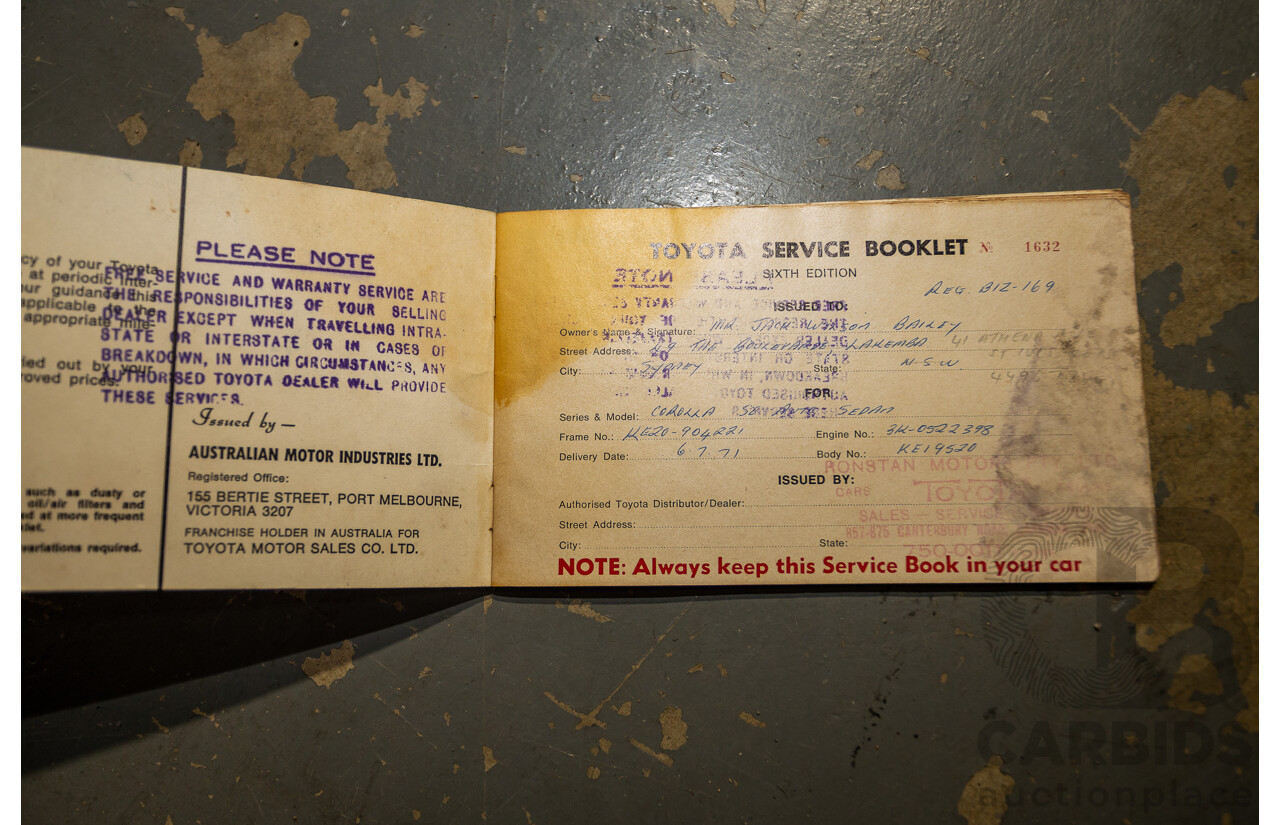 cy of your Toyota
at periodic inter-
ur guidance this
applicable to the
appropriate mile-
ied out by your
roved prices.
such as dusty or
oil/air filters and
ed at more frequent
klet.
variations required.
PLEASE NOTE
FREE SERVICE AND WARRANTY SERVICE ARE
THE RESPONSIBILITIES OF YOUR SELLING
DEALER EXCEPT WHEN TRAVELLING INTRA-
STATE OR INTERSTATE OR IN CASES OF
BREAKDOWN, IN WHICH CIRCUMSTANCES, ANY
AUTHORISED TOYOTA DEALER WILL PROVIDE
THESE SERVICES.
Issued by —
AUSTRALIAN MOTOR INDUSTRIES LTD.
Registered Office:
155 BERTIE STREET, PORT MELBOURNE,
VICTORIA 3207
FRANCHISE HOLDER IN AUSTRALIA FOR
TOYOTA MOTOR SALES CO. LTD.
TOYOTA SERVICE BOOKLET № 1632
SIXTH EDITION
REG. BIZ-169
ISSUED TO:
Owner's Name & Signature: MR. JACK BAILEY
Street Address: 69 THE BOULEVARDE LAKEMBA 41
City: SYDNEY State: N.S.W.
FOR
Series & Model: COROLLA SEDAN
Frame No.: KE20-904221 Engine No.: 3K-0522398
Delivery Date: 6 7.71 Body No.: KE19520
ISSUED BY:
RONSTAN MOTORS
CARS TOYOTA
SALES — SERVICE
857-875 CANTERBURY
Authorised Toyota Distributor/Dealer:
Street Address:
City: State:
NOTE: Always keep this Service Book in your car
CARBIDS
auctionplace